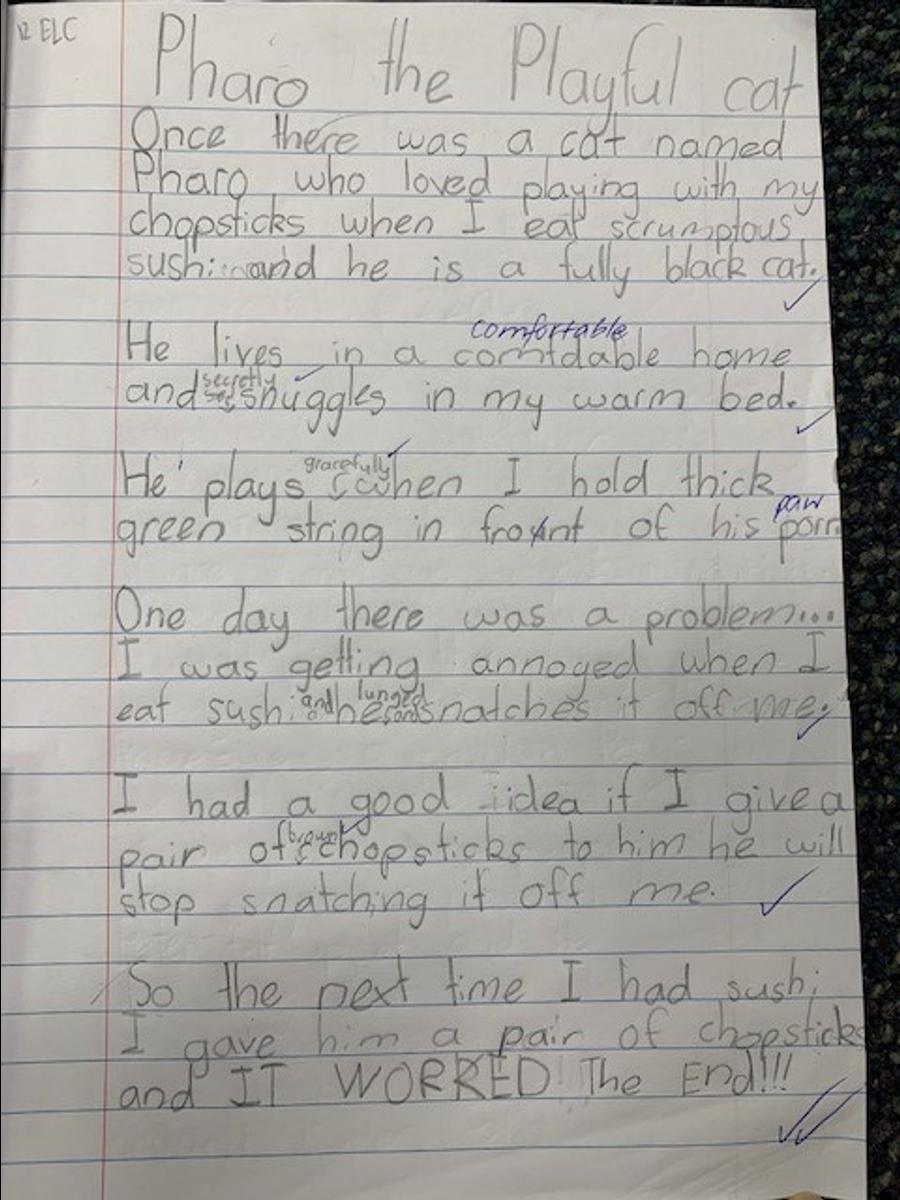 12 ELC
Pharo the Playful cat
Once there was a cat named
Pharo who loved playing with my
chopsticks when I eat scrumptous
sushi and he is a fully black cat.
comfortable
He lives in a comtdable home
secretly
and snuggles in my warm bed.
gracefully
He plays when I hold thick
paw
green string in front of his porn
One day there was a problem...
I was getting annoyed when I
and lunged
eat sushi he and snatches it off me.
I had a good idea if I give a
brown
pair of chopsticks to him he will
stop snatching it off me.
So the next time I had sushi
I gave him a pair of chopsticks
and IT WORRED! The End!!!